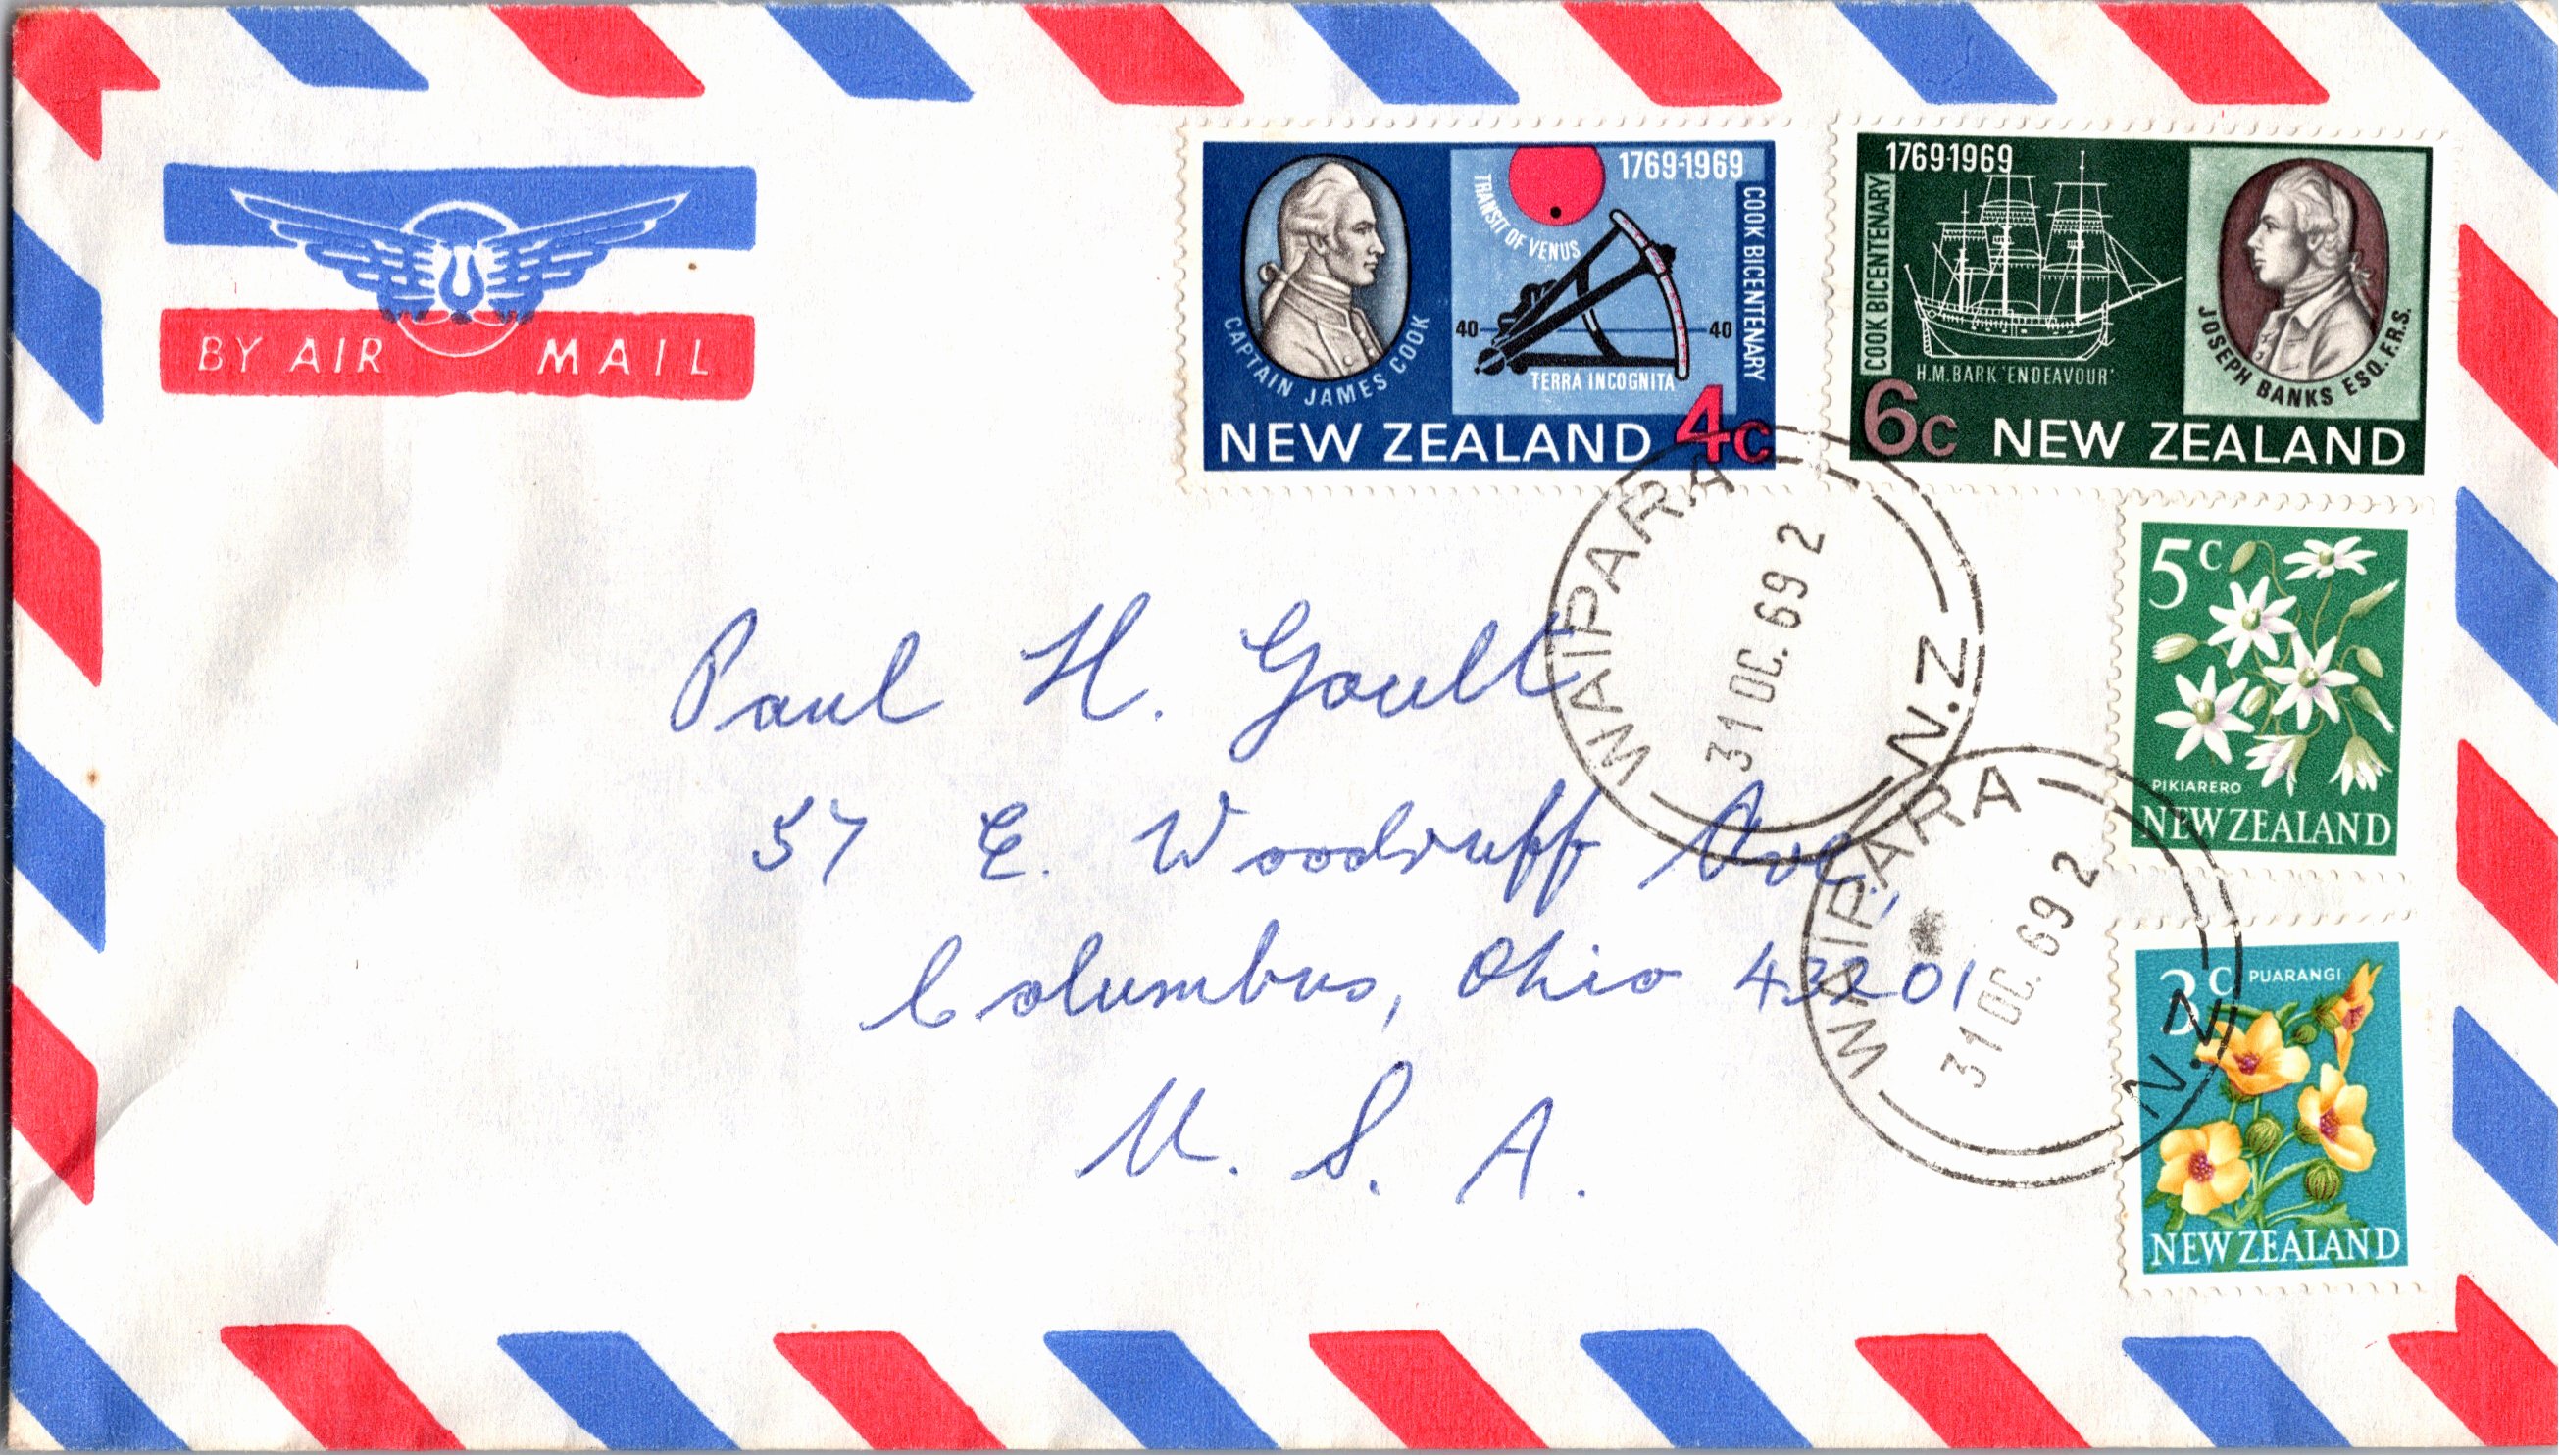 BY AIR MAIL
1769-1969
TRANSIT OF VENUS
COOK BICENTENARY
CAPTAIN JAMES COOK
40 40
TERRA INCOGNITA
NEW ZEALAND 4c
1769-1969
COOK BICENTENARY
H.M.BARK 'ENDEAVOUR'
JOSEPH BANKS ESQ.F.R.S.
6c NEW ZEALAND
WAIPARA N.Z
31 OC. 69 2
5c
PIKIARERO
NEW ZEALAND
Paul H. Goull
57 E. Woodruff Ave.,
Columbus, Ohio 43201
U. S. A.
WAIPARA N.Z
31 OC. 69 2
3c PUARANGI
NEW ZEALAND